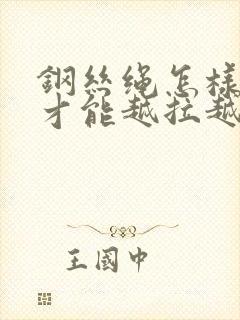 鋼丝绳怎樣
才能越拉越
王國中